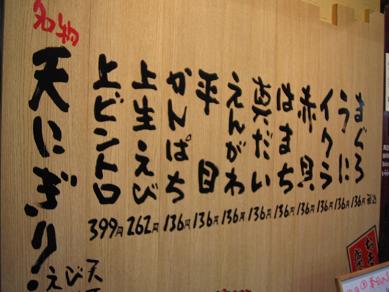 まぐろ 136円 税込
うに 136円
イクラ 136円
赤貝 136円
はまち 136円
真だい 136円
えんがわ 136円
平目 136円
かんぱち 136円
上生えび 262円
上ビントロ 399円
名物
天にぎり!
えび天